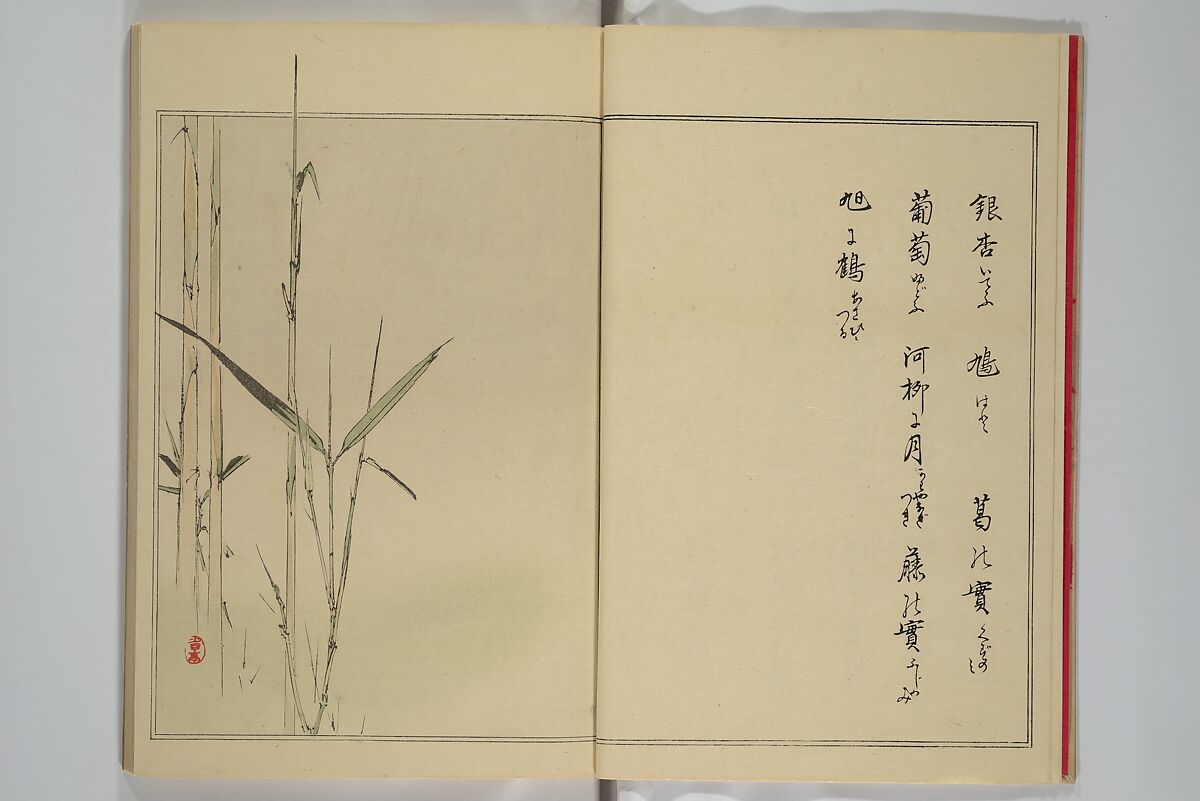 銀杏いてふ 鳩はと 葛の實くずのみ
葡萄ぶどふ 河柳に月かはやなぎつき 藤の實ふじのみ
旭に鶴あさひつる